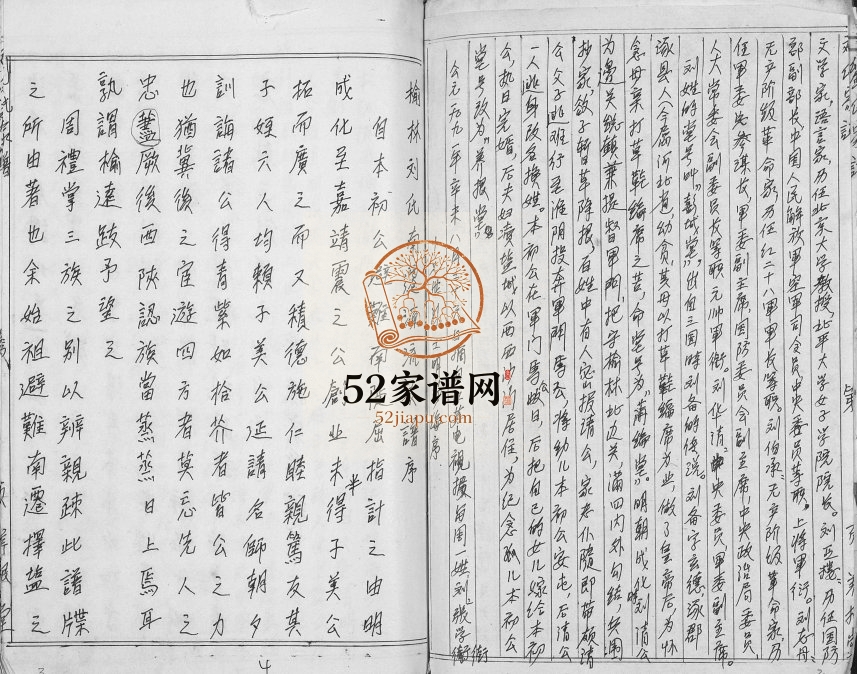 文学家，语言家，历任北京大学教授，北平大学女子学院院长。刘亚楼，历任国防
部副部长，中国人民解放军空军司令员，中央委员等职。上将军衔。刘志丹，
无产阶级革命家，历任红二十八军军长等职。刘伯承，无产阶级革命家，历
任军委总参谋长，军委副主席，国防委员会副主席，中央政治局委员，
人大常委会副委员长等职，元帅军衔。刘华清，中央委员，军委副主席。
刘姓的堂号叫“彭城堂”，出自三国时刘备的后裔。刘备字玄德，涿郡
涿县人（今属河北省），幼贫，其母以打草鞋编席为业，做了皇帝后，为怀
念母亲打草鞋编席之苦，命堂号为“蒲编堂”。明朝成化刘清公
为边关统领兼提督军明，把守榆林北边关，满四内外勾结，兵围
抄家，欲子暂草除根，百姓中有人密报清公，家老仆随即带领清
公父子逃难行至淮阴，投奔军门马公，将幼儿本初公安屯，后清公
一人逃身改名换姓。本初公在军门马公，后把自己的女儿嫁给本初
公，执日完婚，后夫妇渡盐城以西西 居住，为纪念孤儿本初公
堂号改为“养根堂”。
公元一九九一年辛未八月 电视援台周一姓刘张学衡
榆林刘氏 流谱序
自本初公避难南 屈指计之由明
成化至嘉靖震之公创业未半得子美公
拓而广之而又积德施仁睦親篤友其
子姪六人均頼子美公延請名師朝夕
訓誨諸公得青紫如拾芥者皆公之力
也猶冀後之宦遊四方者莫忘先人之
忠藎厥後西陝認族當蒸蒸日上焉耳
孰謂榆達跂予望之
周禮掌三族之别以辨親疎此譜牒
之所由著也余始祖避難南遷擇盐之
4
52家谱网
52jiapu.com